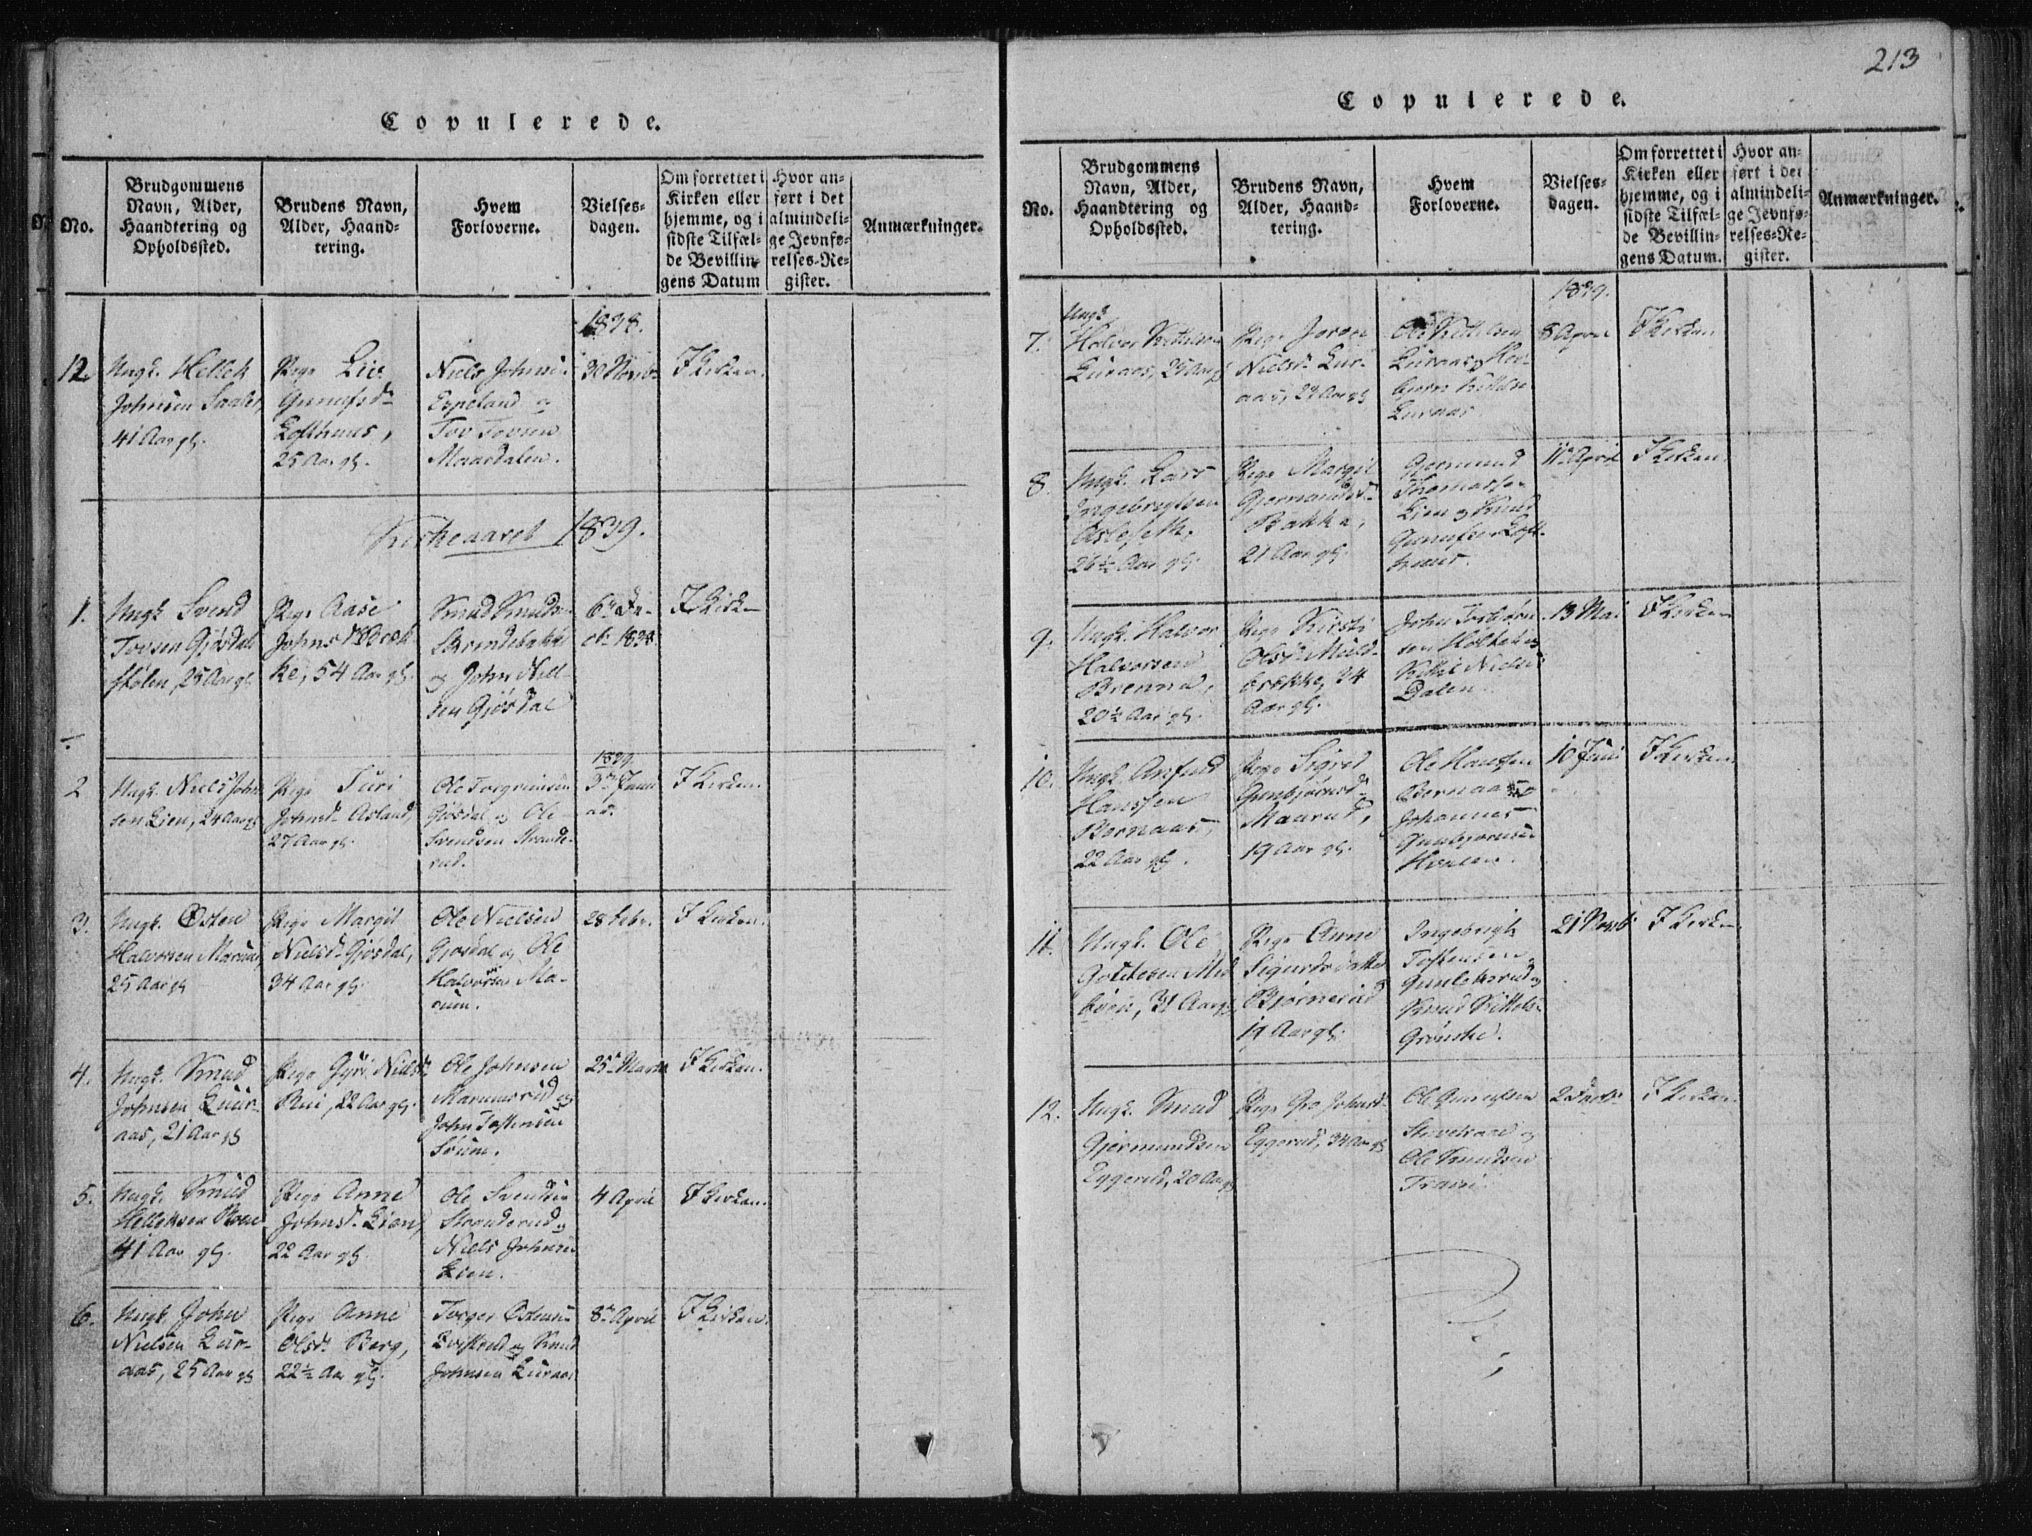 Copulerede.
No.
Brudgommens Navn, Alder, Haandtering og Opholdssted.
Brudens Navn, Alder, Haandtering.
Hvem Forloverne.
Vielses-dagen.
Om forrettet i Kirken eller hjemme, og i sidste Tilfælde Bevillingens Datum
Hvor anført i det almindelige Jevnførelses-Register.
Anmærkninger.
1838.
12.
Ungk. Hellek
Johnsen
41 Aar gl.
Pige Lie
Gunulfsd.
Lofthuus,
25 Aar gl.
Niels Johnsen
Espeland og
Tov Tovsen
Maardalen.
30 Novbr
I Kirken.
Kirkeaaret 1839.
1.
Ungk. Svend
Tovsen Gjösdal
stölen, 25 Aar gl.
Pige Aase
Johnsd.
54 Aar gl.
Knud Knuds.
og John Niel-
sen Gjösdal
6te De-
cbr 1838.
I Kirken
2
Ungk. Niels John
sen Lien, 24 Aar gl
Pige Turi
Johnsd. Asland,
27 Aar gl.
Ole Torgrimsen
Gjösdal og Ole
Svendsen Strande-
rud.
1839.
3die Janu
ar.
I Kirken.
3.
Ungk. Östen
Halvorsen
25 Aar gl
Pige Margit
Nielsd. Gjösdal,
34 Aar gl.
Ole Nielsen
Gjösdal og Ole
Halvorsen Ma-
rum.
28 Febr.
I Kirken.
4.
Ungk. Knud
Johnsen Luur-
aas, 21 Aar gl
Pige Gyri Nielsd.
Rui, 22 Aar gl.
Ole Johnsen
Marumsrud og
John Tostensen
Söum.
25de Marts
I Kirken.
5.
Ungk. Knud
Helleksen
41 Aar gl.
Pige Anne
Johnsd. Lien,
22 Aar gl.
Ole Svendsen
Stranderud og
Niels Johnsen
Lien.
4 April
I Kirken.
6.
Ungk. John
Nielsen Luur-
aas, 25 Aar gl
Pige Anne
Olsd. Berg,
22½ Aar gl.
Torger Östens.
og Knud
Johnsen Luraas
8de April
I Kirken.
213
Copulerede.
No.
Brudgommens Navn, Alder, Haandtering og Opholdssted.
Brudens Navn, Alder, Haandtering.
Hvem Forloverne.
Vielses-dagen.
Om forrettet i Kirken eller hjemme, og i sidste Tilfælde Bevillingens Datum.
Hvor anført i det almindelige Jevnførelses-Register.
Anmærkninger.
1839.
7.
Ungk.
Halvor Kittelsen
Luraas, 25 Aar gl
Pige Joran
Nielsd. Lur-
aas, 29 Aar gl
Ole Kittelsen
Luraas og Her-
bjørn Kittels.
Luraas.
8 April
I Kirken
8.
Ungk. Lars
Ingebrigtsen
26½ Aar gl.
Pige Margit
Gjermundsd.
Bakka,
21 Aar gl.
Gjermund
Thomassen
Lien og Knud
Gunulfsen Loft-
huus.
11te April
I Kirken.
9.
Ungk. Halvor
Halvorsen
Brenna,
20½ Aar gl.
Pige Kirsti
Olsd.
brække, 24
Aar gl.
John Torbjörn
sen Holtet og
Kittil Nielsen
Dalen.
13 Mai
I Kirken
10.
Ungk. Anfind
Hanssen
Bernaas,
22 Aar gl.
Pige Sigrid
Gunbjörnsd.
Maarud,
19 Aar gl.
Ole Hansen
Bernaas og
Johannes
Gunbjörnsen
10 Juni
I Kirken.
11.
Ungk. Ole
31 Aar gl.
Pige Anne
Sigurdsdatter
Björnerud
19 Aar gl.
Ingebrigt
Tostensen
Gunleksrud og
Knud Kittels.
Grönske.
21 Novb.
I Kirken
12.
Ungk. Knud
Gjermundsen
Eggerud, 20 Aar gl
Pige Gro Johnsd.
Eggerud, 34 Aar gl
Ole Gunulfsen
og
Ole Knudsen
Traai.
I Kirken.